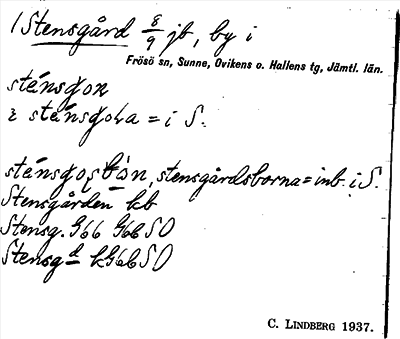 1 Stensgård 8/9 jb, by i
Frösö sn, Sunne, Ovikens o. Hallens tg, Jämtl. län.
sténsgon
i sténsgoɳa = i S.
sténsgoʂbòn, stensgårdsborna = inb. i S.
Stensgården kb
Stensg. G66 G6b SO
Stensgd kG6b SO
C. LINDBERG 1937.